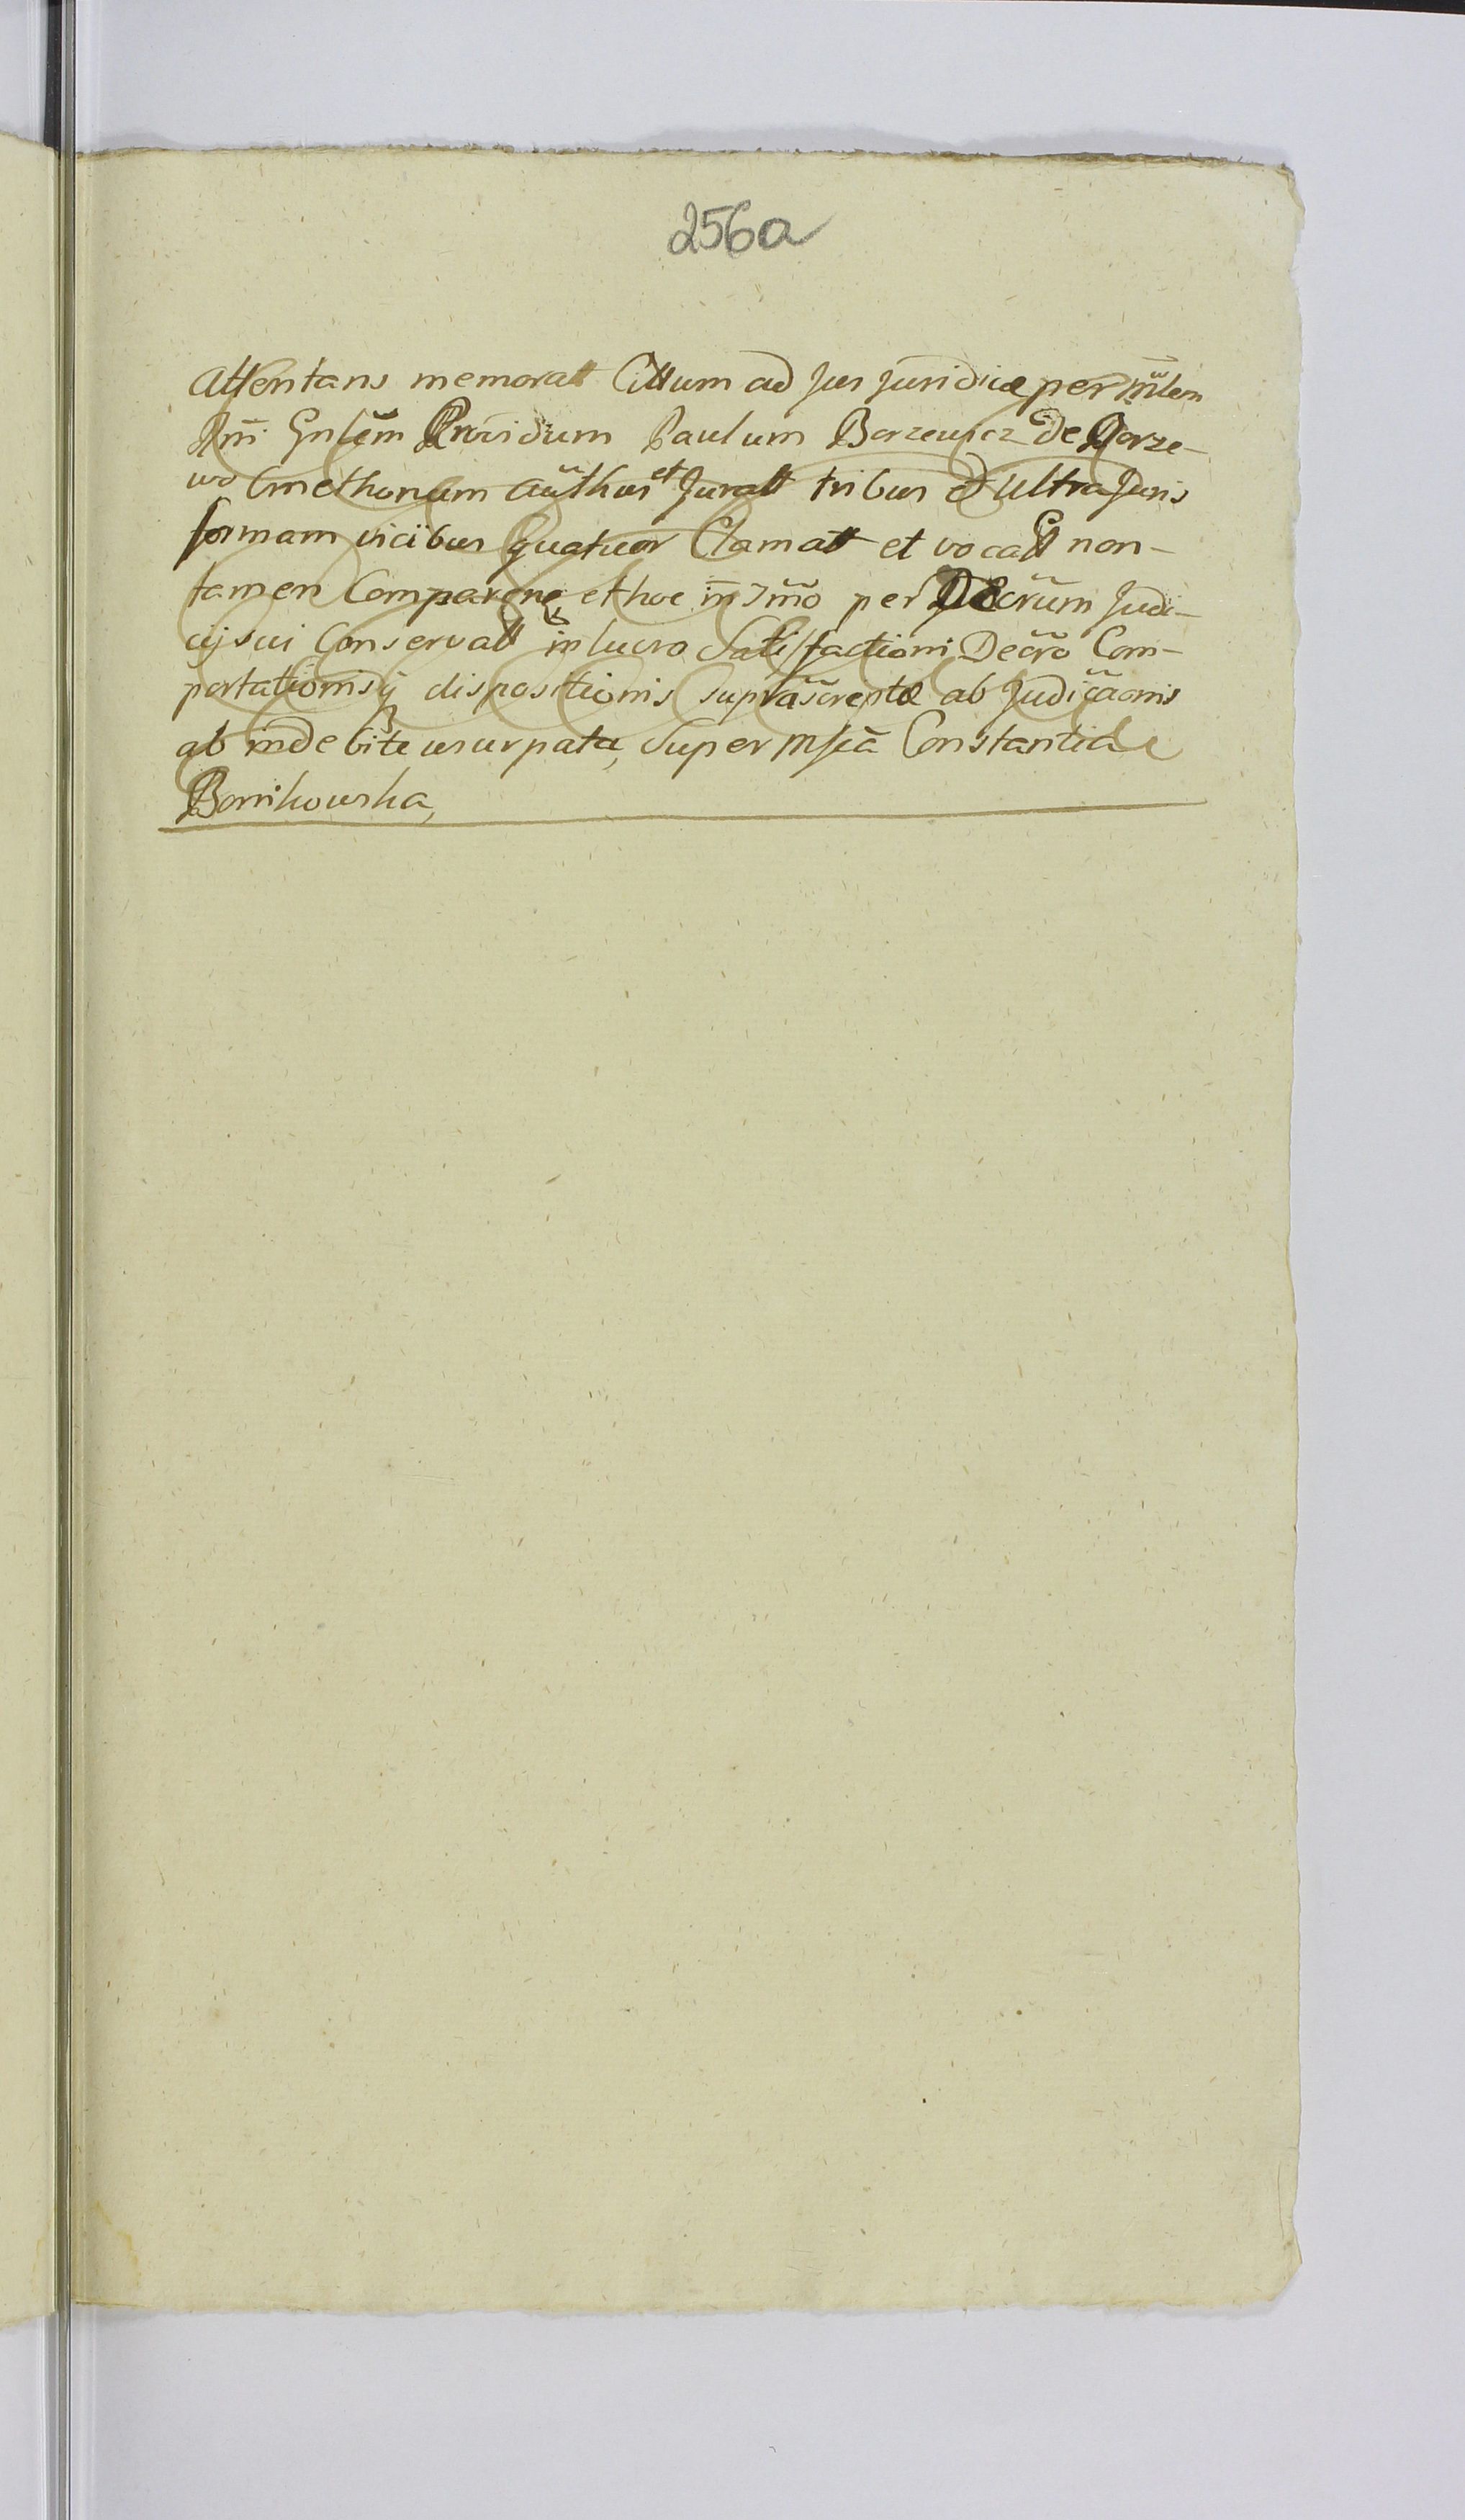 256a
Attentans memoratt Cittum ad Jus Juridice per mlem
Rmi Gnlem Providum Paulum Borzewicz De Borze-
wo Cmethonem authus et Juratt tribus et Ultra Juris
formam vicibus quatuor Clamatt et vocatt non-
tamen Comparene et hoc in Imo per Decrum Judi-
cij sui Conservatt in lucro Satisfactioni Decro Com-
portationis ij dispositionis suprascriptae ab Judicaonis
ab indebite usurpata, Super msia Constantia
Bornikowska,